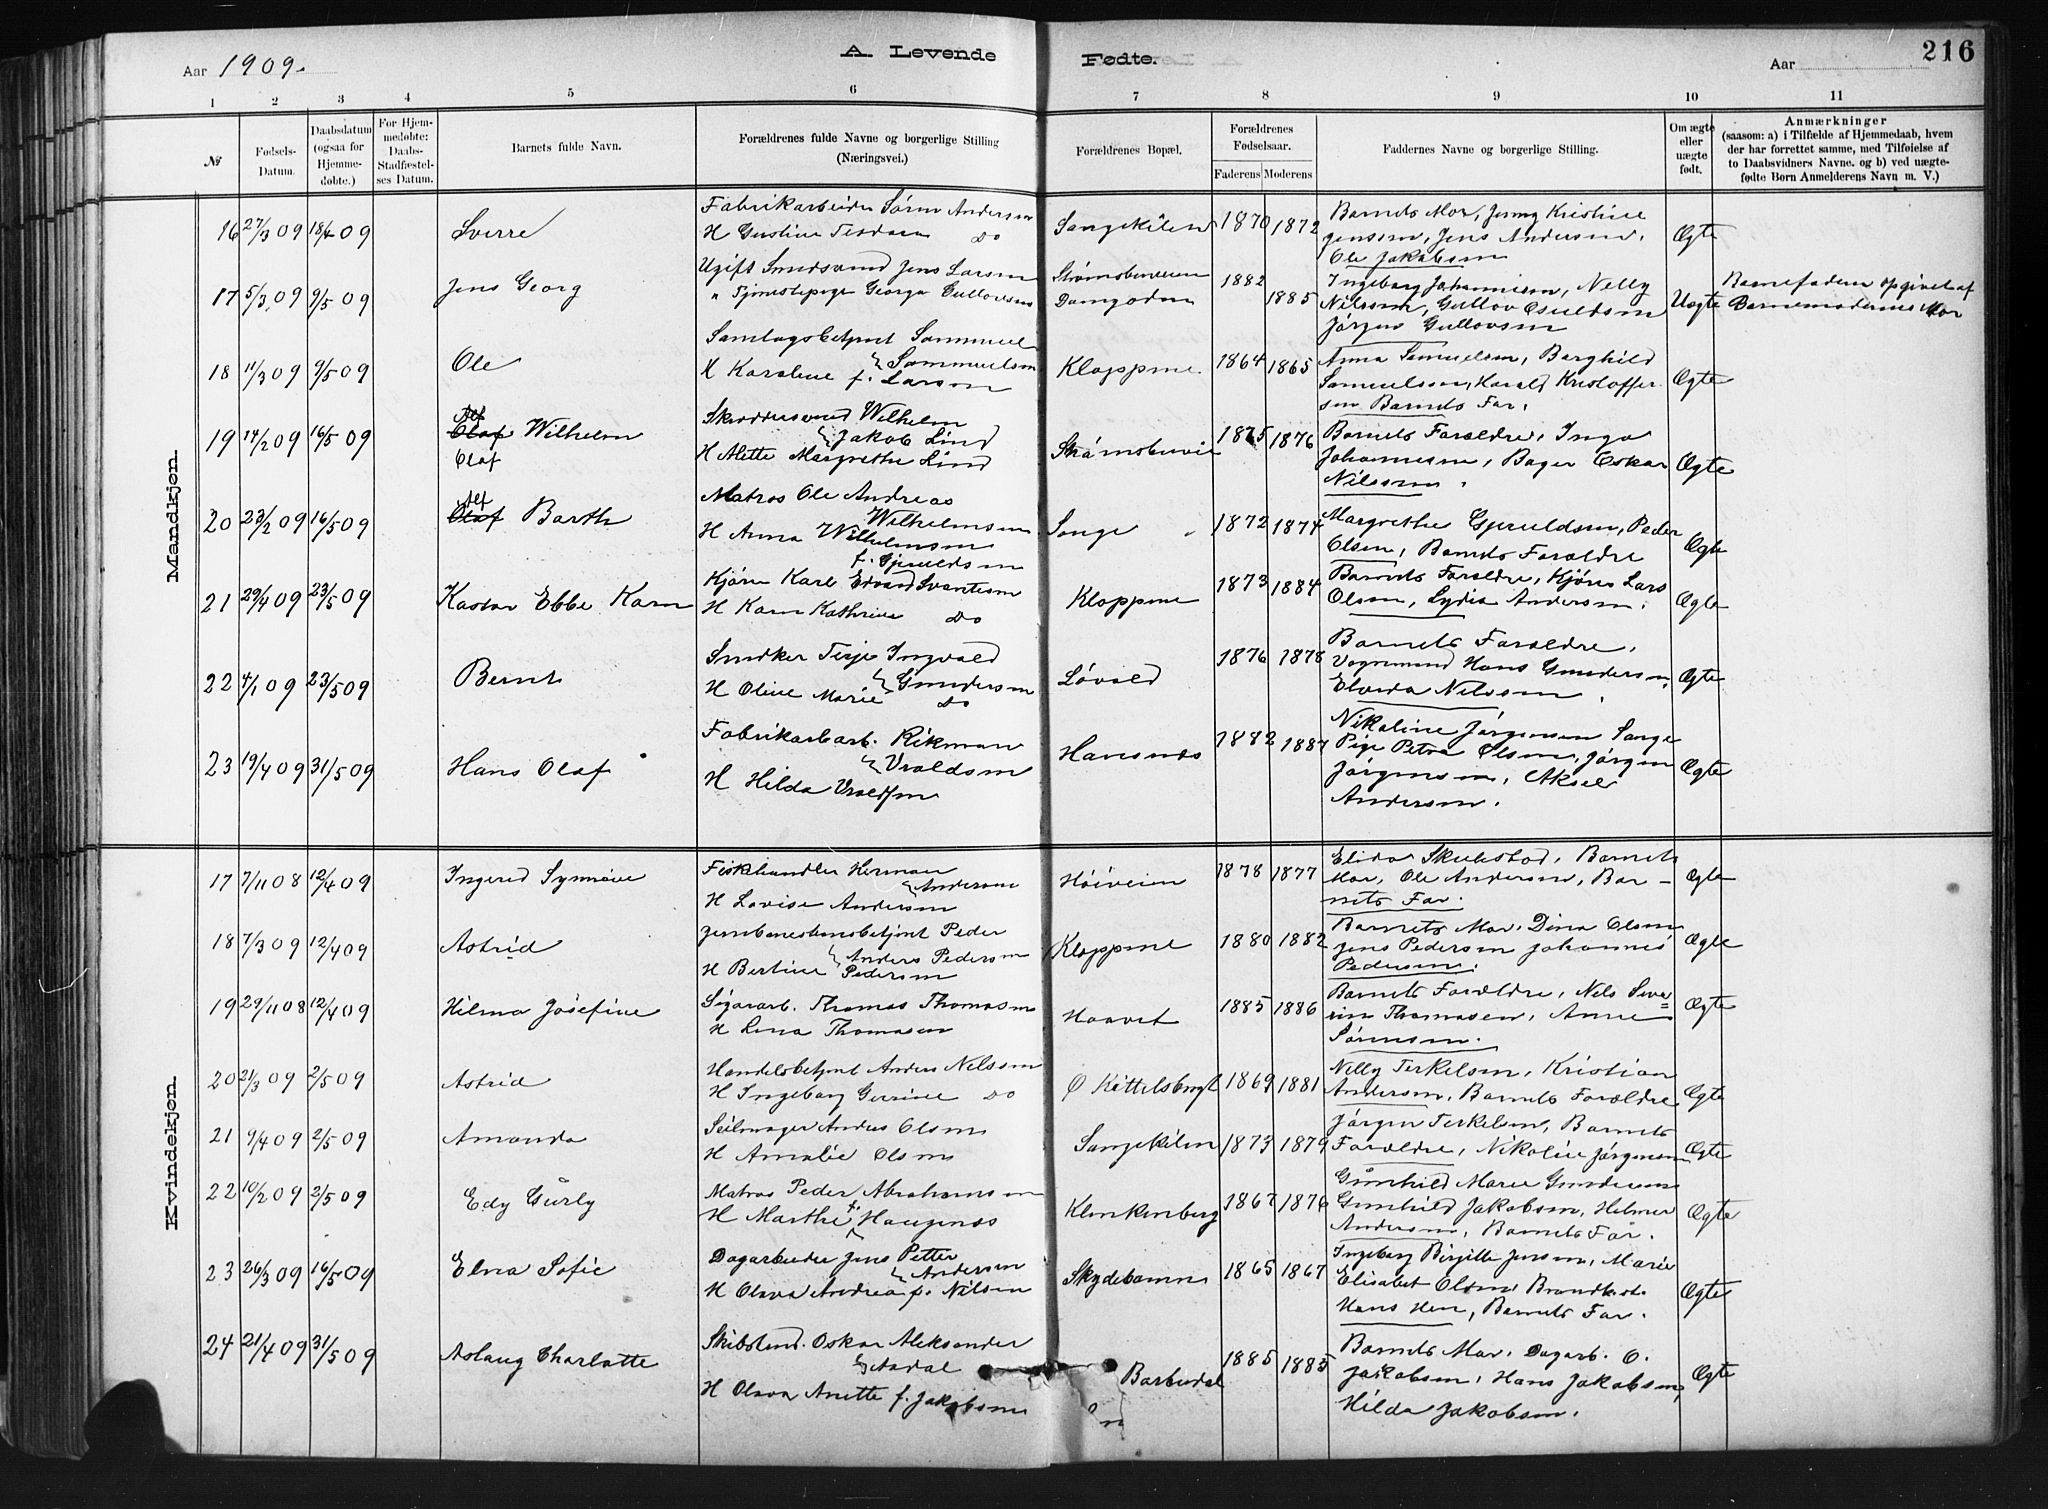 Aar 1909.
A. Levende
Fødte.
Aar
216
1 2 3 4 5 6 7 8 9 10 11
№
Fødsels-
Datum.
Daabsdatum
(ogsaa for
Hjemme-
døbte.)
For Hjem-
medøbte:
Daabs-
Stadfæstel-
ses Datum.
Barnets fulde Navn.
Forældrenes fulde Navne og borgerlige Stilling
(Næringsvei.)
Forældrenes Bopæl.
Forældrenes
Fødselsaar.
Faderens Moderens
Faddernes Navne og borgerlige Stilling.
Om ægte
eller
uægte
født.
Anmærkninger
(saasom: a) i Tilfælde af Hjemmedaab, hvem
der har forrettet samme, med Tilføielse af
to Daabsvidners Navne. og b) ved uægte-
fødte Børn Anmelderens Navn m. V.)
Mandkjøn.
16 27/3 09 18/4 09
Sverre
Fabrikarbeider Søren Andersen
H Gustine Do
Songekilen
1870 1872
Barnets Mor, Jenny Kristine
Jensen, Jens Andersen,
Ole Jakobsen
Ægte
17 5/3 09 9/5 09
Jens Georg
Ugift Smedsvend Jens Larsen
" Tjenestepige Georga Gullovsen
Strømsbuveien
1882 1885
Ingeborg Johannesen, Nelly
Nilssen, Gullov
Jørgen Gullovsen
Uægte
Barnefaderen opgivet af
Barnemoderens Mor
18 11/3 09 9/5 09
Ole
Samlagsbetjent Sammuel
Sammuelsen
H Karoline f. Larsen
Kloppene
1864 1865
Anna Samuelsen, Borghild
Samuelsen, Harald Kristoffer-
sen Barnets Far.
Ægte
19 14/2 09 16/5 09
Alf
Olaf Wilhelm
Olaf
Skræddersvend Wilhelm
Jakob Lind
H Alette Margrethe Lind
Strømsbuvei
1875 1876
Barnets Forældre, Inga
Johannesen, Bager Oskar
Nilssen.
Ægte
20 23/2 09 16/5 09
Alf
Olaf Barth
Matros Ole Andreas
Wilhelmsen
H Anna Wilhelmsen
f. Gjeruldsen
Songe
1872 1874
Margrethe Gjeruldsen, Peder
Olsen, Barnets Forældre
Ægte
21 29/4 09 23/5 09
Kastor Ebbe Karn
Kjører Karl Edvard Svantesen
H Karn Kathrine Do
Kloppene
1873 1884
Barnets Forældre, Kjører Lars
Olsen, Lydia Andersen.
Ægte
22 4/1 09 23/5 09
Bernt
Snedker Terje Ingvald
Gundersen
H Oline Marie Do
Løvold
1876 1878
Barnets Forældre,
Vognmand Hans Gundersen,
Elvida Nilssen.
Ægte
23 19/4 09 31/5 09
Hans Olaf
Fabrikarb. Rikman
Vraldsen
H Hilda Vraldsen
Havsnæs
1882 1887
Nikoline Jørgensen Songe
Pige Petra Olsen, Jørgen
Jørgensen, Aksel
Andersen.
Ægte
Kvindekjøn.
17 7/11 08 12/4 09
Ingerid Synnøve
Fiskhandler Herman
Andersen
H Lovise Andersen
Høiveien
1878 1877
Elida Skulestad, Barnets
Mor, Ole Andersen, Bar-
nets Far.
Ægte
18 7/3 09 12/4 09
Astrid
Jernbanestansbetjent Peder
Anders Pedersen
H Bertine Pedersen
Kloppene
1880 1882
Barnets Mor. Dina Olsen
Jens Pedersen Johannes
Pedersen.
Ægte
19 29/11 08 12/4 09
Hilma Josefine
Sigararb. Thomas Thomasen
H Lina Thomasen
Haavet
1885 1886
Barnets Forældre, Nels Seve-
rin Thomasen, Anne
Sørensen.
Ægte
20 21/3 09 2/5 09
Astrid
Handelsbetjent Anders Nilssen
H Ingeborg Gurine Do
Ø Kittelsbugt
1869 1881
Nelly Terkelsen, Kristian
Andersen, Barnets Forældre
Ægte
21 9/4 09 2/5 09
Amanda
Seilmager Anders Olsen
H Amalie Olsen
Songekilen
1873 1879
Jørgen Terkelsen, Barnets
Forældre, Nikoline Jørgensen
Ægte
22 10/2 09 2/5 09
Edy Gurly
Matros Peder Abrahamsen
H Marthe f. Haugenæs
Klinkenberg
1867 1876
Gunhild Marie Gundersen
Gunhild Jakobsen, Helmer
Andersen, Barnets Far.
Ægte
23 26/3 09 16/5 09
Elna Sofie
Dagarbeider Jens Petter
Andersen
H Olava Andrea f. Nilsen
Skydebanen
1865 1867
Ingeborg Birgitte Jensen, Marie
Elisabet Olsen Brandkst.
Hans Hen, Barnets Far.
Ægte
24 21/4 09 31/5 09
Aslaug Charlotte
Skibstmd. Oskar Aleksander
Aadal
H Olava Anette f. Jakobsen
Barbudal
1885 1885
Barnets Mor. Dagarb. O.
Jakobsen, Hans Jakobsen,
Hilda Jakobsen.
Ægte